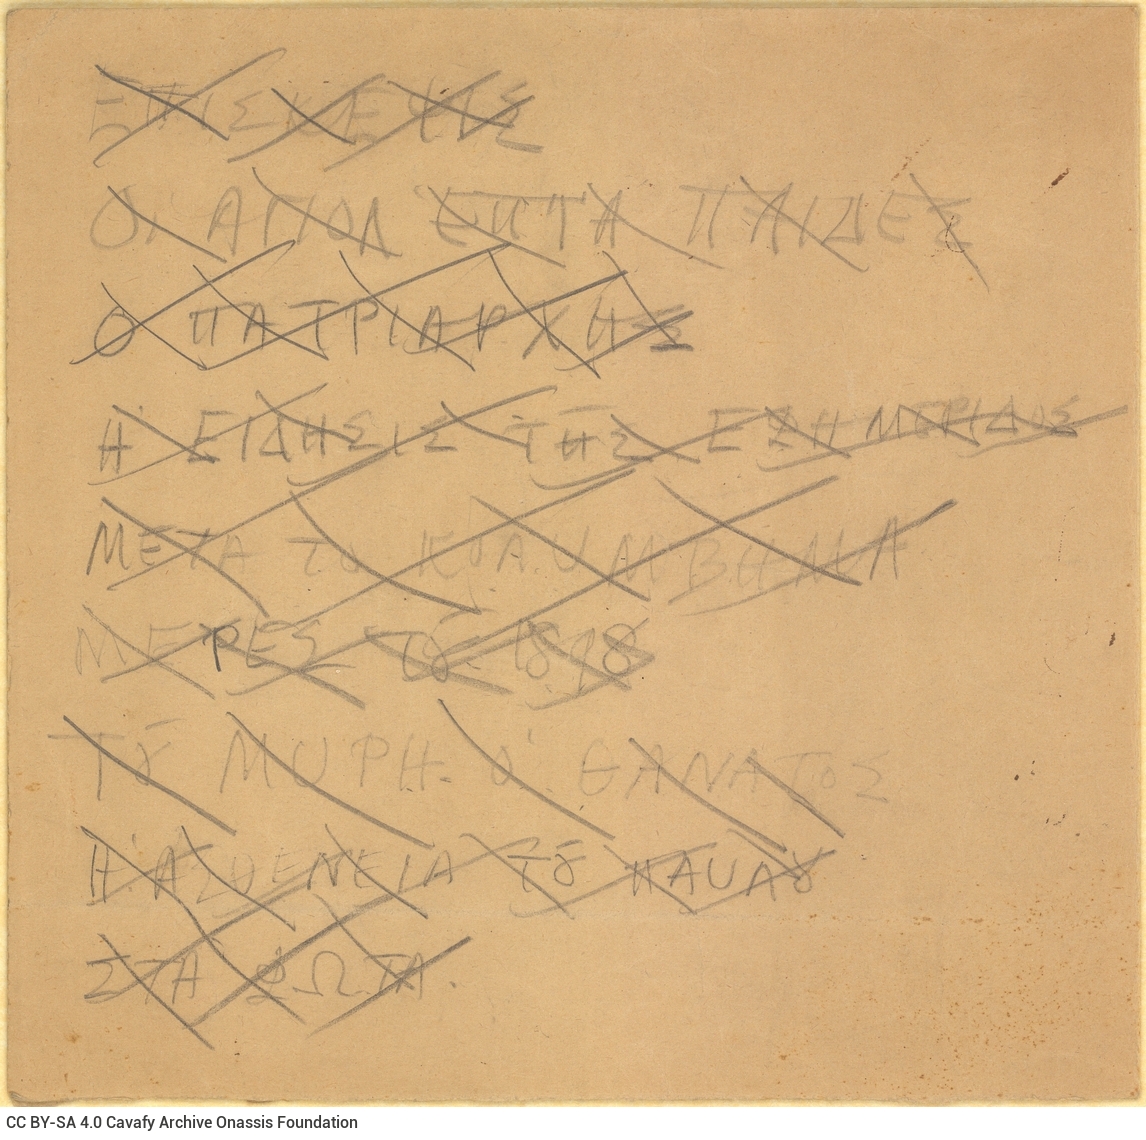 ΕΠΙΣΚΕΨΙΣ
ΟΙ ΑΓΙΟΙ ΕΠΤΑ ΠΑΙΔΕΣ
Ο ΠΑΤΡΙΑΡΧΗΣ
Η ΕΙΔΗΣΙΣ ΤΗΣ ΕΦΗΜΕΡΙΔΟΣ
ΜΕΤΑ ΤΟ ΚΟΛΥΜΒΗΜΑ
ΜΕΡΕΣ ΤΟΥ 1898
ΤΟΥ ΜΥΡΗ. Ο ΘΑΝΑΤΟΣ
Η ΑΣΘΕΝΕΙΑ ΤΟΥ
ΣΤΑ ΦΩΤΑ.
CC BY-SA 4.0 Cavafy Archive Onassis Foundation